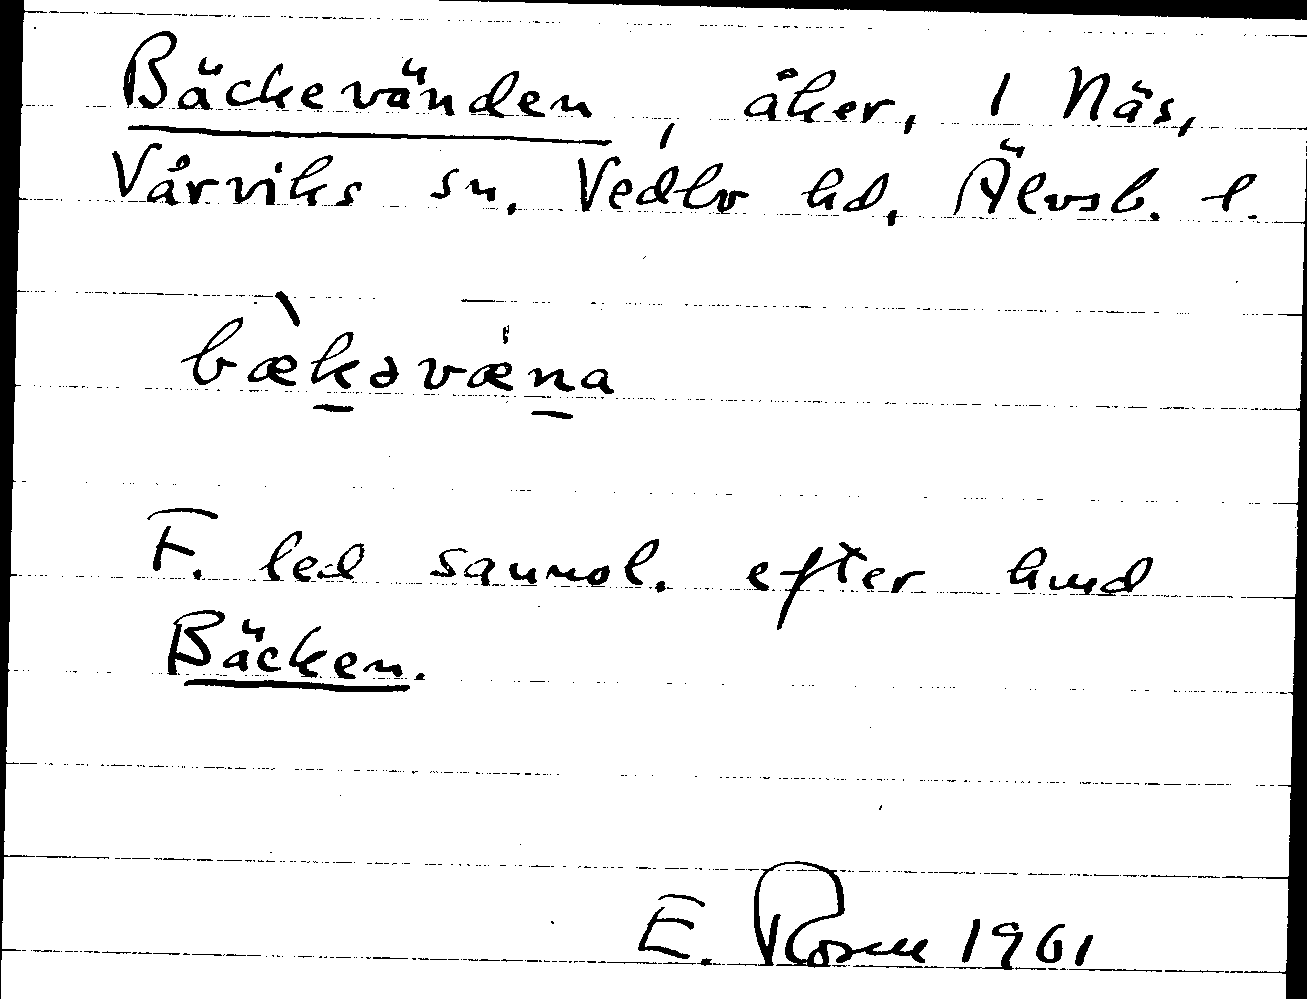 Bäckevänden, åker, 1 Näs,
Vårviks sn. Vedbo hd, Älvsb. l.
bæ̀kəvæ̍na
F. led sannol. efter hmd
Bäcken.
E. Rosen 1961